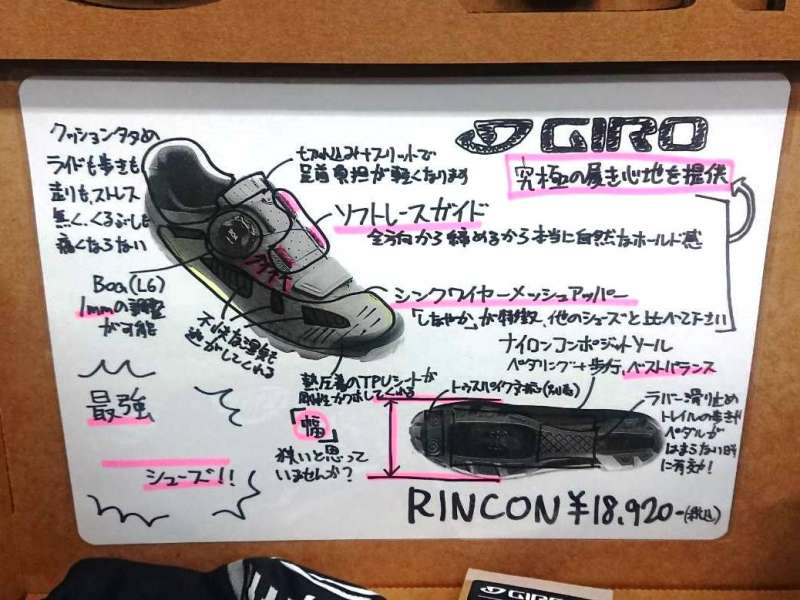 GIRO
究極の履き心地を提供
クッション
ライドも歩きも
走りも、ストレス
無く、くるぶしも
痛くならない
スリットで
足首負担が軽くなります
ソフトレースガイド
全方向から締めるから本当に自然なホールド感
Boa(L6)
1mmの調整
が可能
不快な湿気
逃がしてくれる
シンクワイヤーメッシュアッパー
「しなやか」が特徴、他のシューズと比べて下さい
ナイロンコンポジットソール
ペダリング+歩行、ベストバランス
熱圧着のTPUシートが
剛性カクホしてくれる
トゥスパイク対応(別売)
ラバー滑り止め
トレイルの歩きや
ペダルが
はまらない時
に有効!
「幅」
狭いと思って
いませんか?
最強
シューズ!!
RINCON ¥18,920-(税込)
GIRO